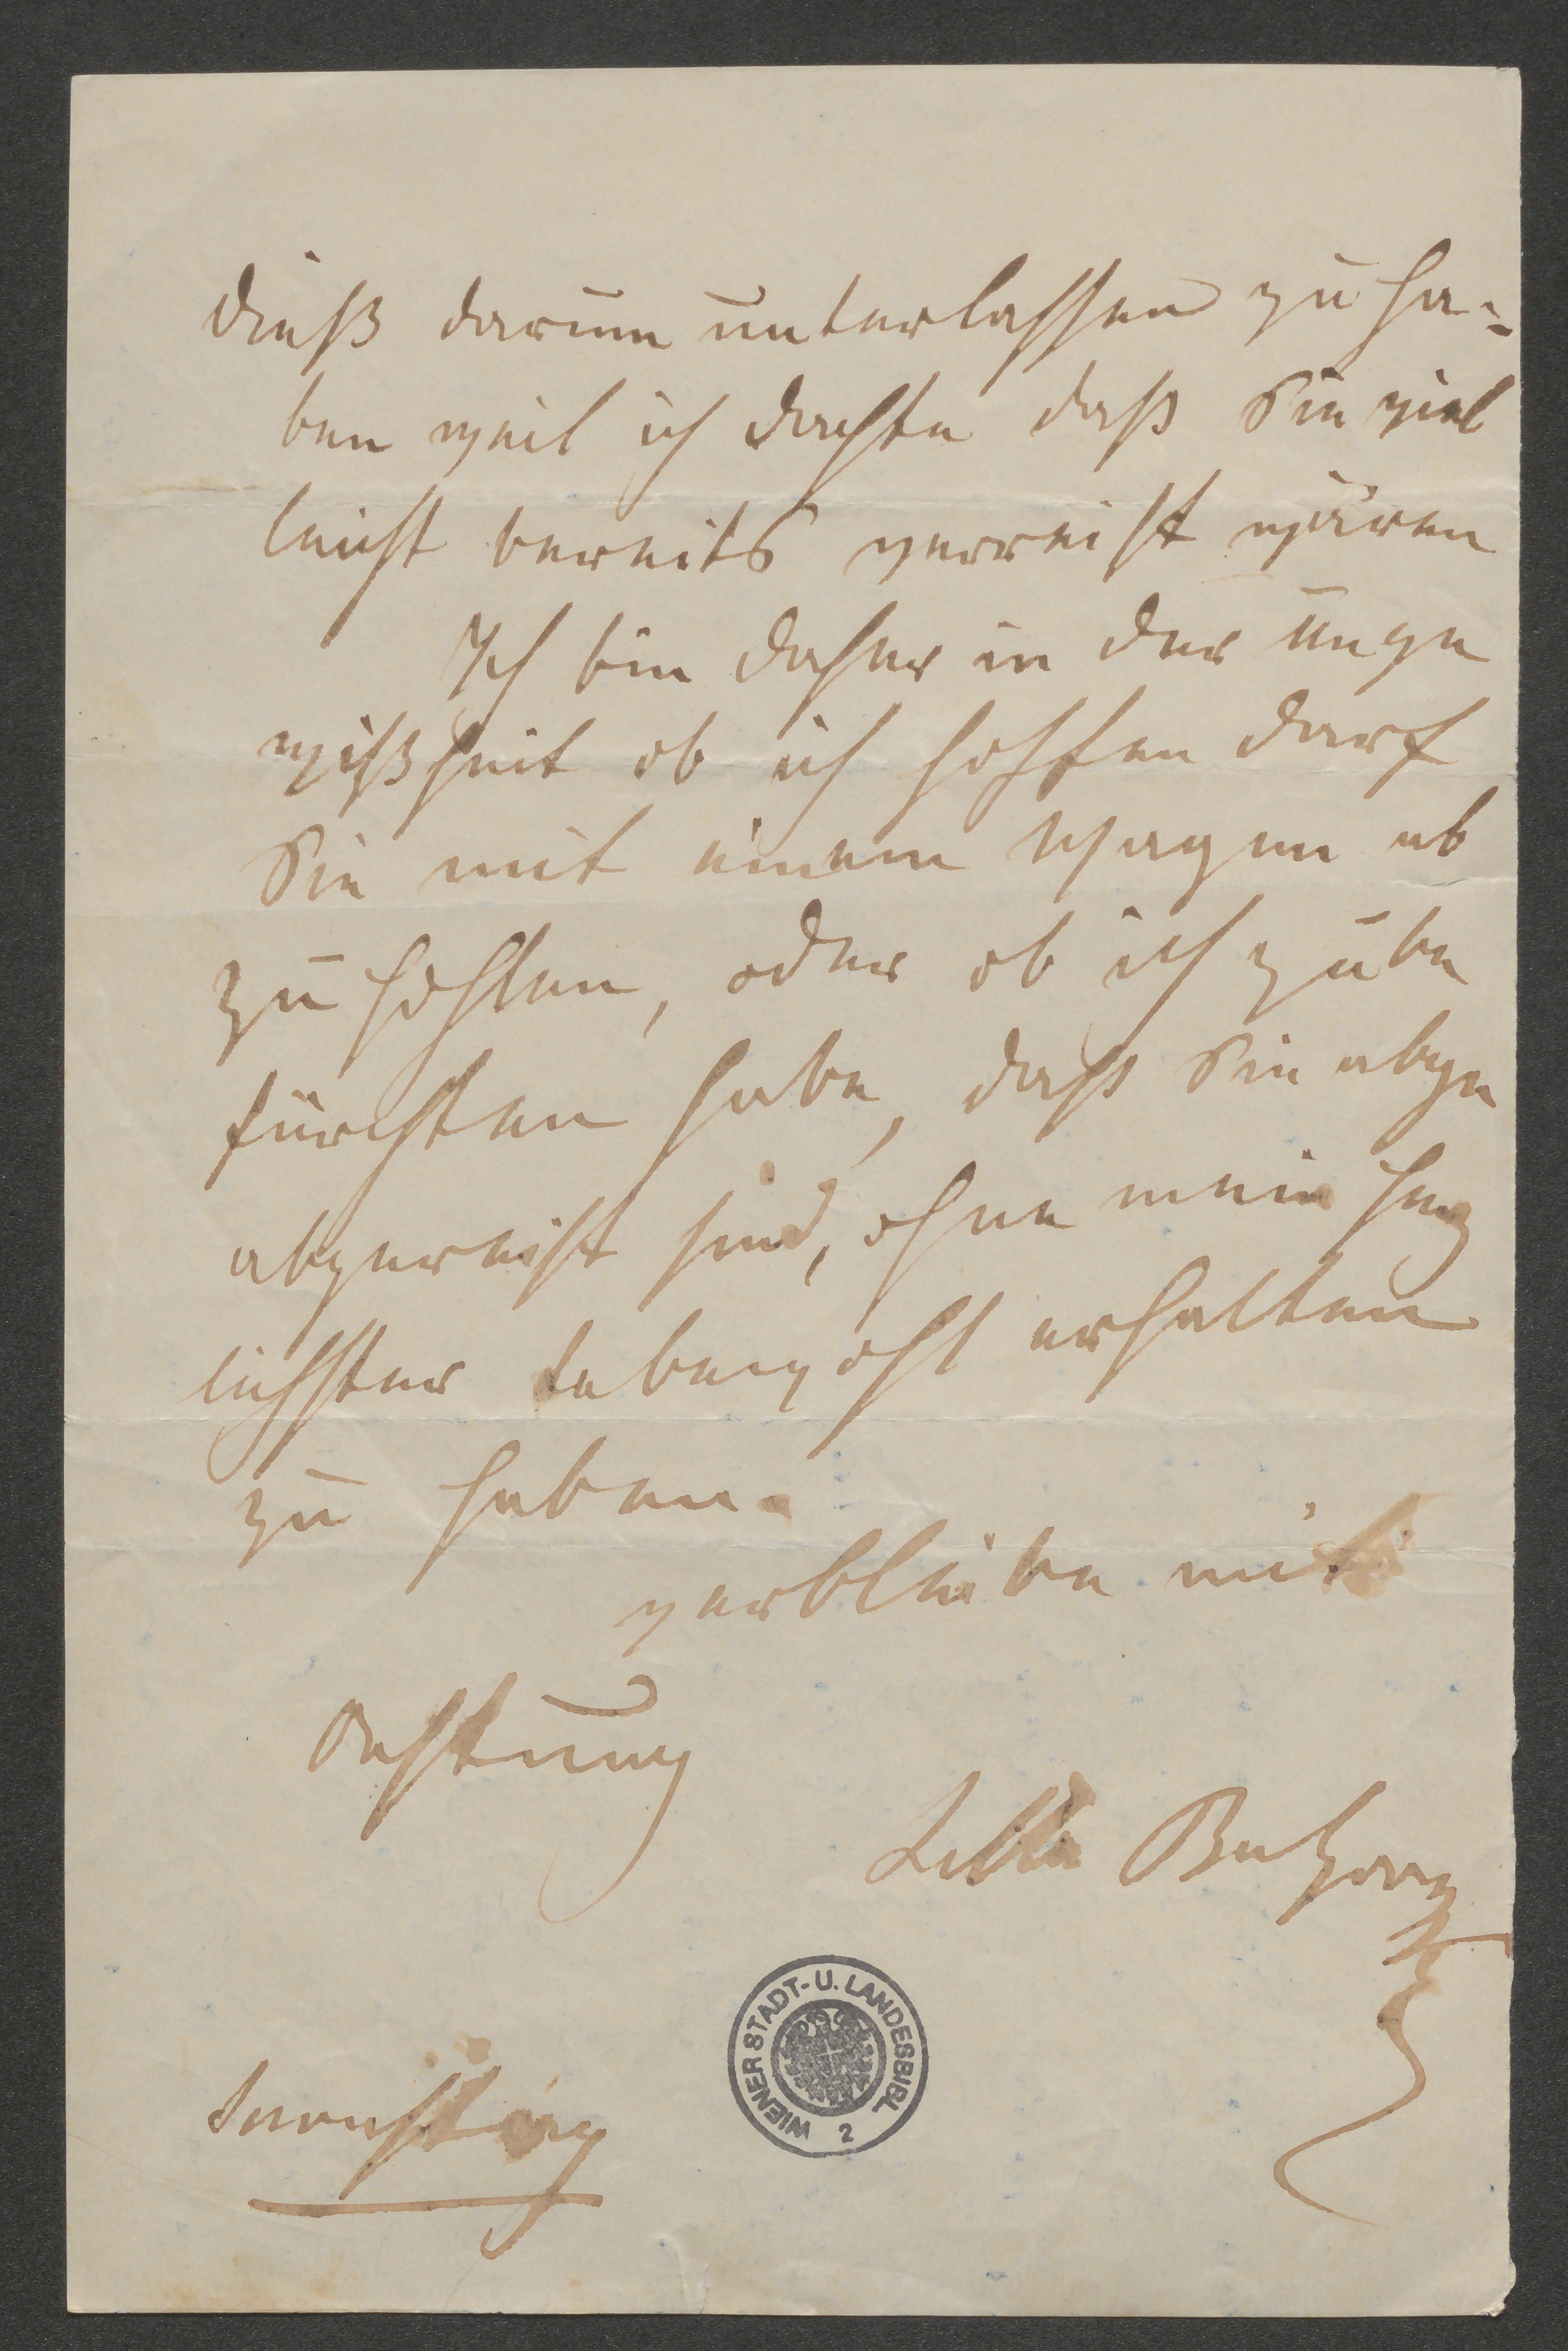 dieß darum unterlassen zu ha-
ben weil ich dachte daß Sie viel
leicht bereits verreist wären
Ich bin daher in der Unge
wißheit ob ich hoffen darf
Sie mit einem Wagen ab
zu hohlen, oder ob ich zu be
fürchten habe, daß Sie abge
abgereist sind, ohne mein herz
lichster Lebewohl erhalten
zu haben.
verbleibe mit
Achtung
WIENER STADT- U. LANDESBIBL.
2